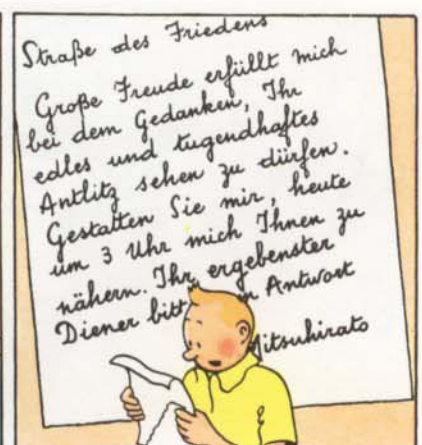 Straße des Friedens
Große Freude erfüllt mich
bei dem Gedanken, Ihr
edles und tugendhaftes
Antlitz sehen zu dürfen.
Gestatten Sie mir, heute
um 3 Uhr mich Ihnen zu
nähern. Ihr ergebenster
Diener bitt n Antwort
itsuhirato